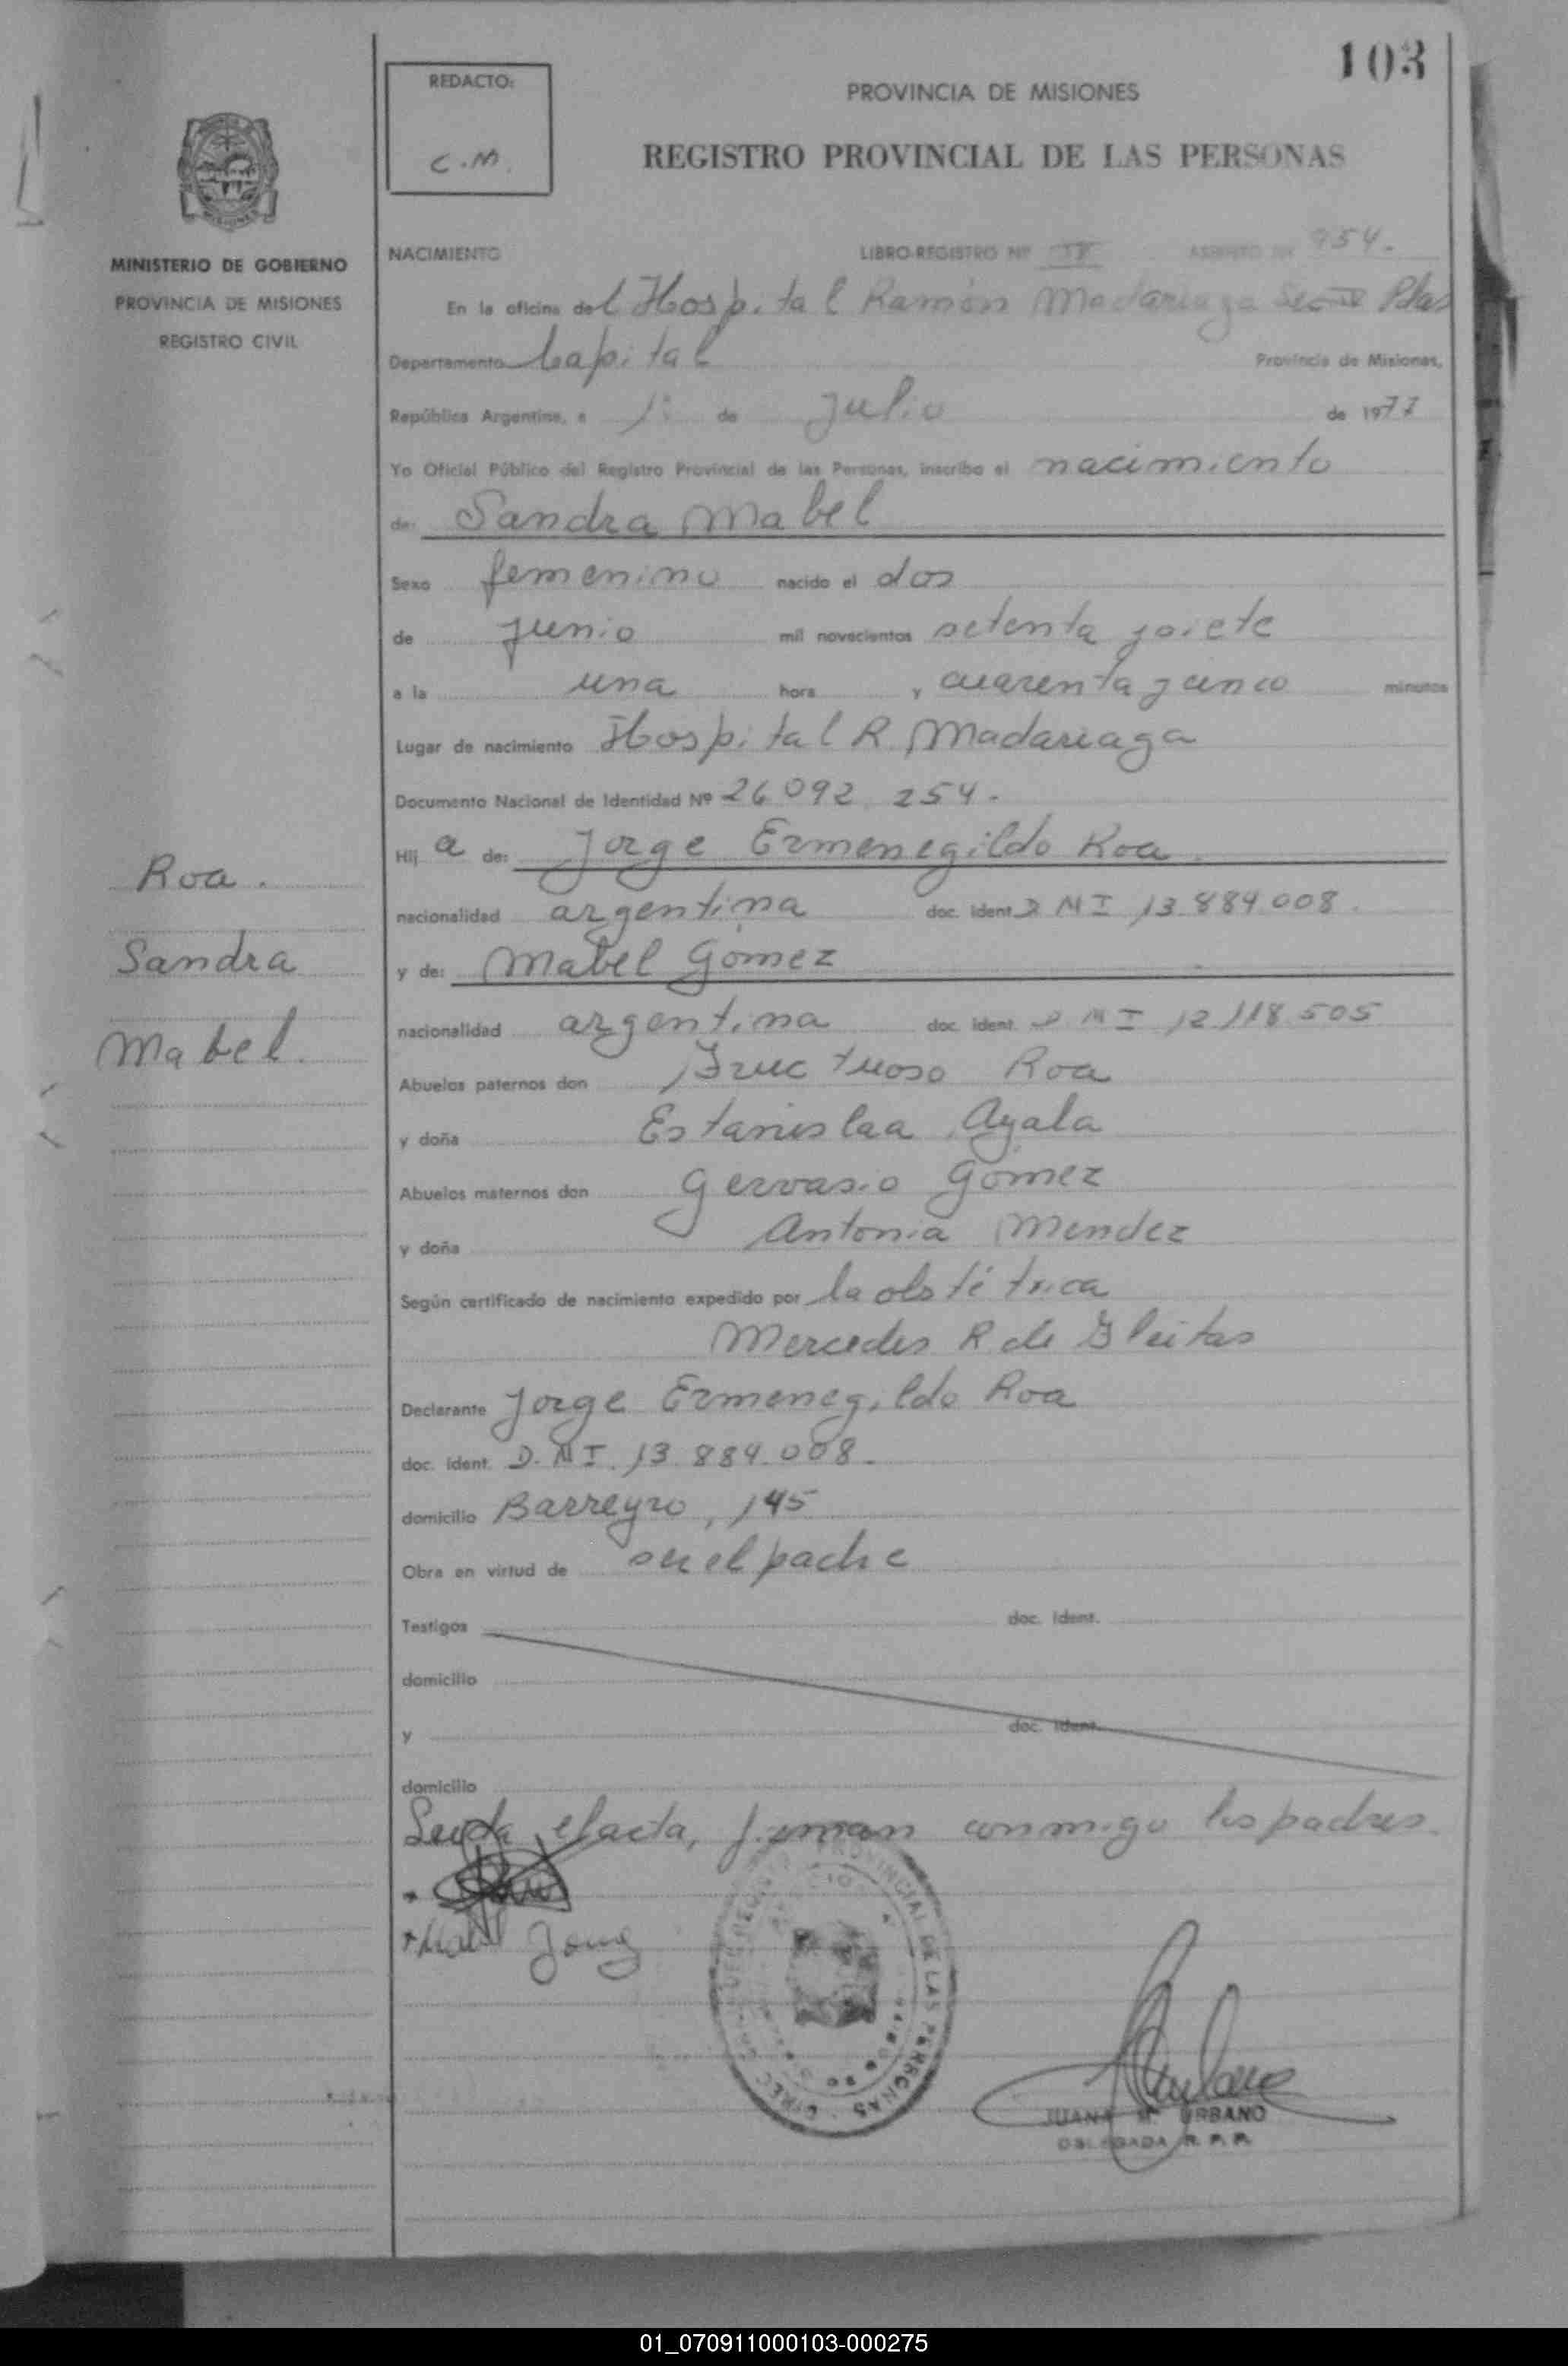 103
REDACTO:
C.M.
PROVINCIA DE MISIONES
REGISTRO PROVINCIAL DE LAS PERSONAS
MISIONES
MINISTERIO DE GOBIERNO
PROVINCIA DE MISIONES
REGISTRO CIVIL
NACIMIENTO LIBRO-REGISTRO Nº ASIENTO Nº 954.
En la oficina del Hospital Ramón Madariaga Sec
Departamento Capital Provincia de Misiones,
República Argentina, a 1º de Julio de 1977
Yo Oficial Público del Registro Provincial de las Personas, inscribo el nacimiento
de: Sandra Mabel
Sexo femenino nacido el dos
de junio mil novecientos setenta y siete
a la una hora y cuarenta y cinco minutos
Lugar de nacimiento Hospital R Madariaga
Documento Nacional de Identidad Nº 26 092 254.
Hij a de: Jorge Ermenegildo Roa
nacionalidad argentina doc. ident. D N I 13 884 008.
y de: Mabel Gómez
nacionalidad argentina doc. ident. D N I 12 118 505
Abuelos paternos don Fructuoso Roa
y doña Estanislaa Ayala
Abuelos maternos don Gervasio Gómez
y doña Antonia Mendez
Según certificado de nacimiento expedido por la obstétrica
Mercedes R de Gleitas
Declarante Jorge Ermenegildo Roa
doc. ident. D. N I. 13 884.008.
domicilio Barreyro, 145
Obra en virtud de ser el padre
Testigos doc. ident.
domicilio
y doc. ident.
domicilio
Leída el acta, firman conmigo los padres.
Roa.
Sandra
Mabel.
PROVINCIAL DE LAS PERSONAS
JUANA M. URBANO
DELEGADA R. P. P.
01_070911000103-000275